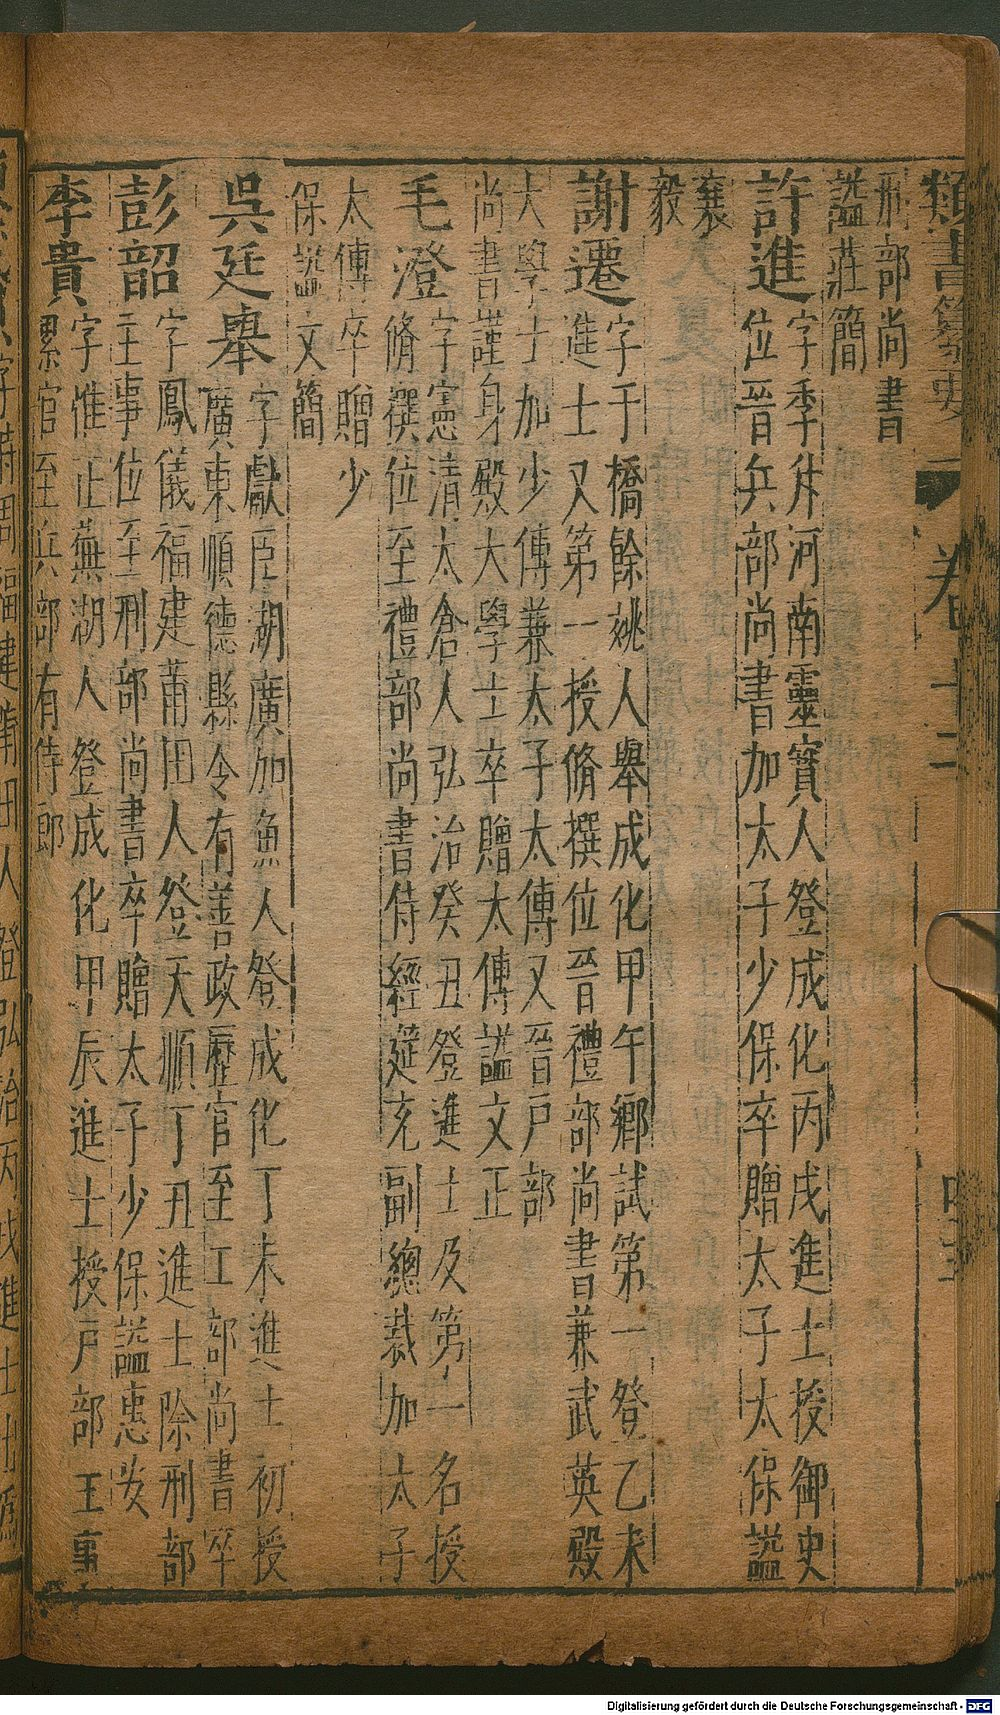 類書纂要 卷十二
刑部尚書
謚莊簡
許進 字季升河南靈寶人登成化丙戌進士授御史
位晉兵部尚書加太子少保卒贈太子太保謚
襄
毅
謝遷 字于橋餘姚人舉成化甲午鄉試第一登乙未
進士又第一授脩撰位晉禮部尚書兼武英殿
大學士加少傳兼太子太傳又晉戶部
尚書謹身殿大學士卒贈太傳謚文正
毛澄 字憲清太倉人弘治癸丑登進士及第一名授
脩撰位至禮部尚書侍經筵充副總裁加太子
太傳卒贈少
保謚文簡
吳廷舉 字獻臣湖廣加魚人登成化丁未進士初授
廣東順德縣令有善政歷官至工部尚書卒
彭韶 字鳳儀福建莆田人登天順丁丑進士除刑部
主事位至刑部尚書卒贈太子少保謚惠安
李貴 字惟正蕪湖人登成化甲辰進士授戶部王事
累官至兵部有侍郎
字 福建莆田人登弘治丙戌進士
Digitalisierung gefördert durch die Deutsche Forschungsgemeinschaft - DFG